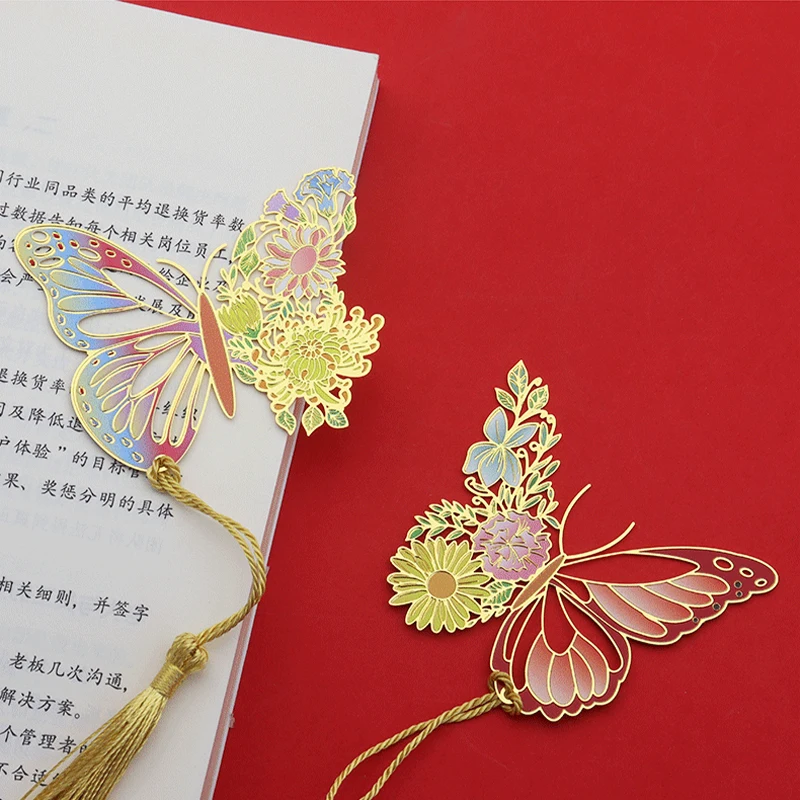 行业同品类的平均退换货率数
过数据告知每个相关岗位员工,
给企业及
会严
发展及
退换货率
司及降低退
户体验”的目标管
果、奖惩分明的具体
相关细则，并签字
老板几次沟通,
解决方案。
个管理者的
不合适